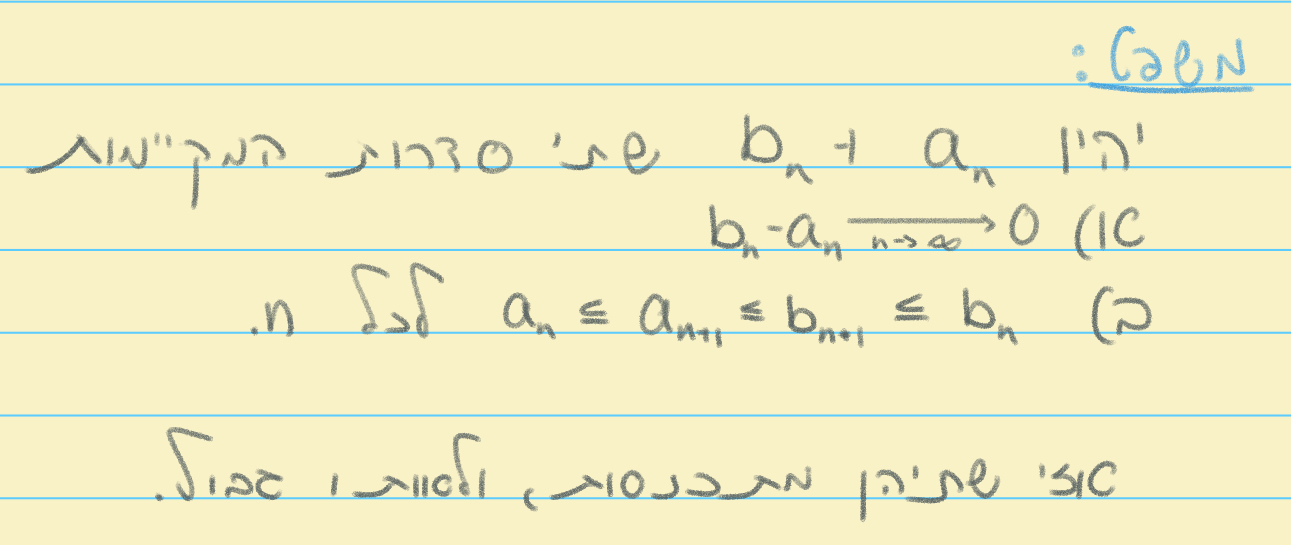 משפט:
יהיו a_n ו b_n שתי סדרות המקיימות
א) b_n - a_n ⟶_{n→∞} 0
ב) a_n ≤ a_{n+1} ≤ b_{n+1} ≤ b_n לכל n.
אזי שתיהן מתכנסות, ולאותו גבול.